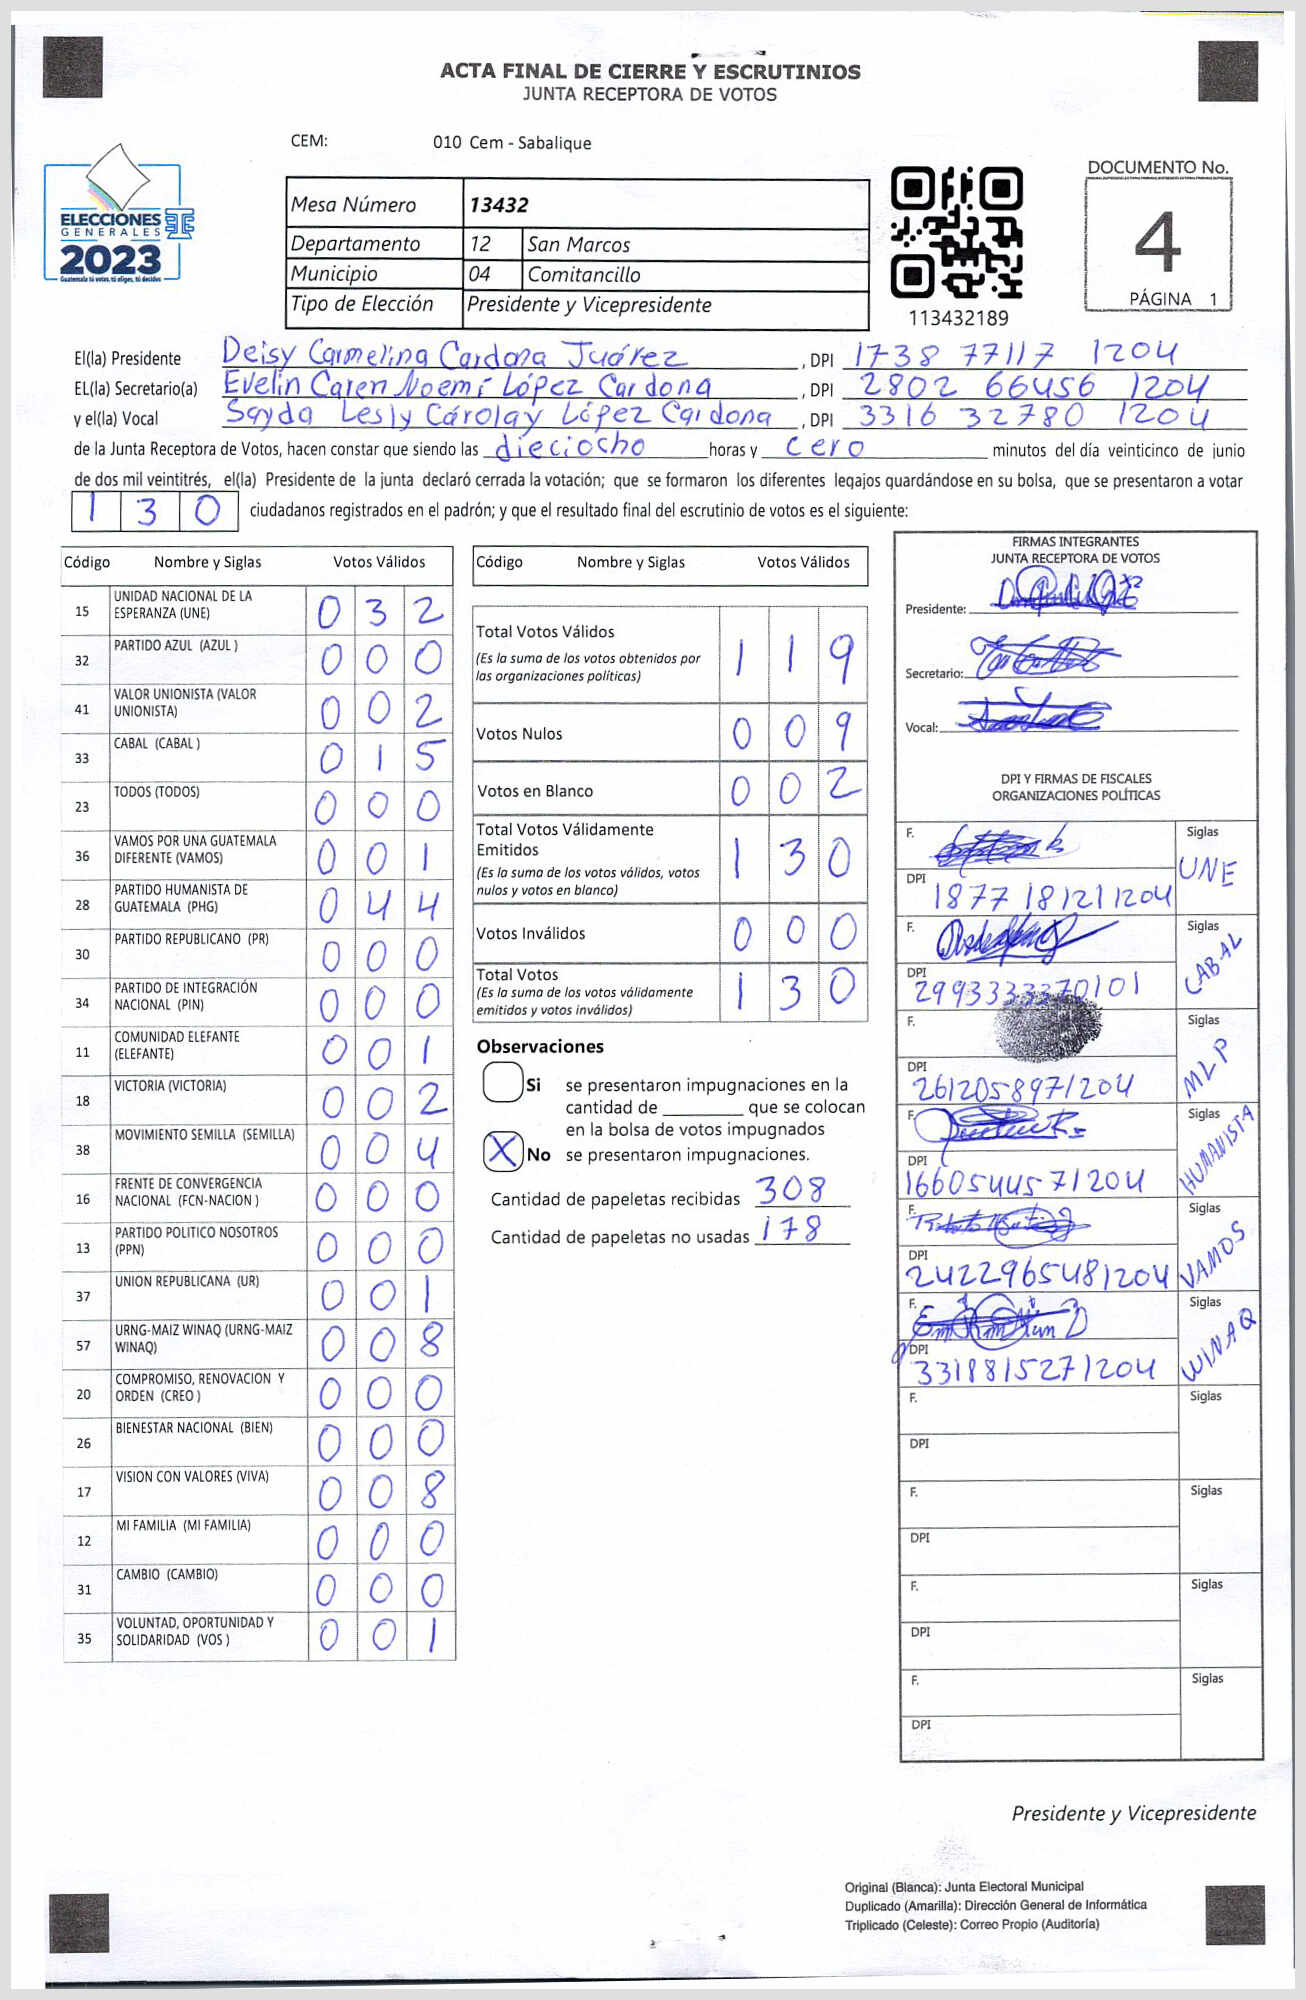 ACTA FINAL DE CIERRE Y ESCRUTINIOS
JUNTA RECEPTORA DE VOTOS
CEM: 010 Cem - Sabalique
ELECCIONES
GENERALES
2023
Guatemala tú votas, tú eliges, tú decides
Mesa Número 13432
Departamento 12 San Marcos
Municipio 04 Comitancillo
Tipo de Elección Presidente y Vicepresidente
113432189
DOCUMENTO No.
4
PÁGINA 1
El(la) Presidente Deisy Carmelina Cardona Juárez , DPI 1738 77117 1204
EL(la) Secretario(a) Evelin Caren Noemí López Cardona , DPI 2802 66456 1204
y el(la) Vocal Sayda Lesly Cárolay López Cardona , DPI 3316 32780 1204
de la Junta Receptora de Votos, hacen constar que siendo las dieciocho horas y cero minutos del día veinticinco de junio
de dos mil veintitrés, el(la) Presidente de la junta declaró cerrada la votación; que se formaron los diferentes legajos guardándose en su bolsa, que se presentaron a votar
130 ciudadanos registrados en el padrón; y que el resultado final del escrutinio de votos es el siguiente:
Código Nombre y Siglas Votos Válidos
15 UNIDAD NACIONAL DE LA ESPERANZA (UNE) 032
32 PARTIDO AZUL (AZUL ) 000
41 VALOR UNIONISTA (VALOR UNIONISTA) 002
33 CABAL (CABAL ) 015
23 TODOS (TODOS) 000
36 VAMOS POR UNA GUATEMALA DIFERENTE (VAMOS) 001
28 PARTIDO HUMANISTA DE GUATEMALA (PHG) 044
30 PARTIDO REPUBLICANO (PR) 000
34 PARTIDO DE INTEGRACIÓN NACIONAL (PIN) 000
11 COMUNIDAD ELEFANTE (ELEFANTE) 001
18 VICTORIA (VICTORIA) 002
38 MOVIMIENTO SEMILLA (SEMILLA) 004
16 FRENTE DE CONVERGENCIA NACIONAL (FCN-NACION ) 000
13 PARTIDO POLITICO NOSOTROS (PPN) 000
37 UNION REPUBLICANA (UR) 001
57 URNG-MAIZ WINAQ (URNG-MAIZ WINAQ) 008
20 COMPROMISO, RENOVACION Y ORDEN (CREO ) 000
26 BIENESTAR NACIONAL (BIEN) 000
17 VISION CON VALORES (VIVA) 008
12 MI FAMILIA (MI FAMILIA) 000
31 CAMBIO (CAMBIO) 000
35 VOLUNTAD, OPORTUNIDAD Y SOLIDARIDAD (VOS ) 001
Código Nombre y Siglas Votos Válidos
Total Votos Válidos 119
(Es la suma de los votos obtenidos por
las organizaciones políticas)
Votos Nulos 009
Votos en Blanco 002
Total Votos Válidamente
Emitidos 130
(Es la suma de los votos válidos, votos
nulos y votos en blanco)
Votos Inválidos 000
Total Votos 130
(Es la suma de los votos válidamente
emitidos y votos inválidos)
Observaciones
Si se presentaron impugnaciones en la
cantidad de ________ que se colocan
en la bolsa de votos impugnados
X No se presentaron impugnaciones.
Cantidad de papeletas recibidas 308
Cantidad de papeletas no usadas 178
FIRMAS INTEGRANTES
JUNTA RECEPTORA DE VOTOS
Presidente:
Secretario:
Vocal:
DPI Y FIRMAS DE FISCALES
ORGANIZACIONES POLÍTICAS
F. Siglas UNE
DPI 1877 18121 1204
F. Siglas CABAL
DPI 2993333370101
F. Siglas MLP
DPI 2612058971204
F. Siglas HUMANISTA
DPI 1660544571204
F. Siglas VAMOS
DPI 2422965481204
F. Siglas WINAQ
DPI 3318815271204
F. Siglas
DPI
F. Siglas
DPI
F. Siglas
DPI
F. Siglas
DPI
Presidente y Vicepresidente
Original (Blanca): Junta Electoral Municipal
Duplicado (Amarilla): Dirección General de Informática
Triplicado (Celeste): Correo Propio (Auditoría)